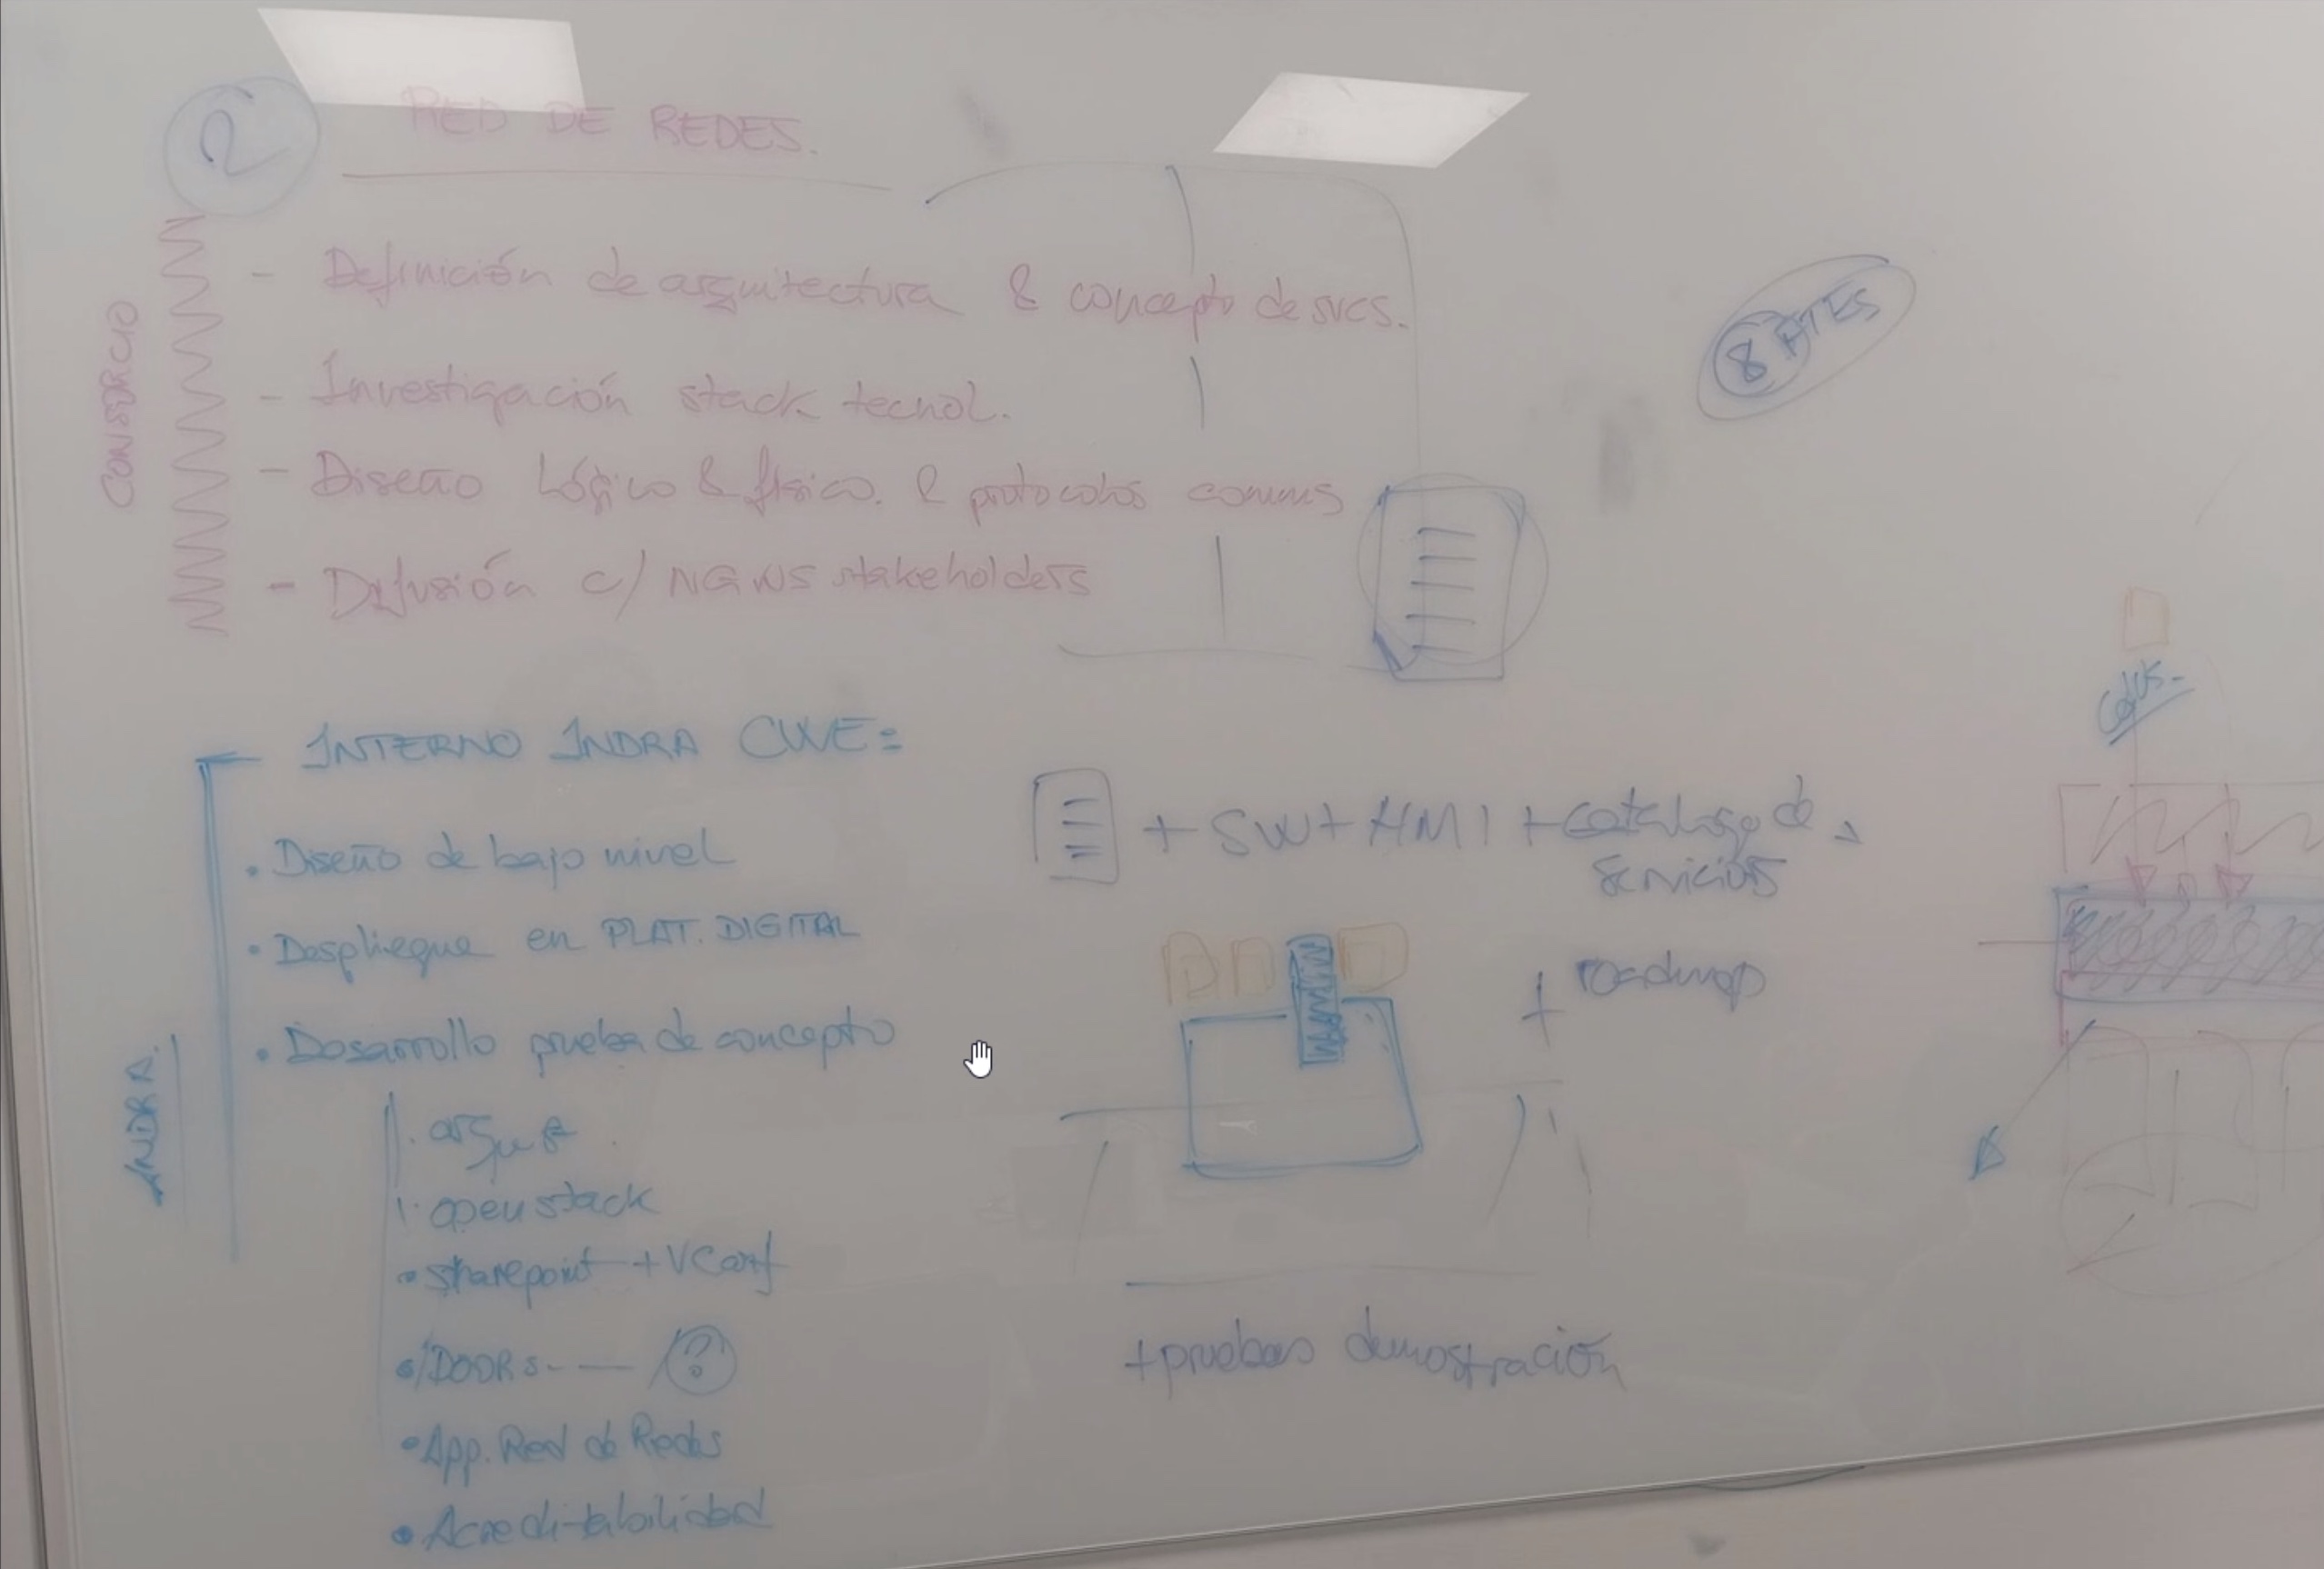 2
RED DE REDES.
CONSORCIO
- Definición de arquitectura & concepto de svcs.
- Investigación stack tecnol.
- Diseño lógico & físico. & protocolos comms
- Difusión c/ NGWS stakeholders
8
INTERNO INDRA CWE:
INDRA.
• Diseño de bajo nivel
• Despliegue en PLAT. DIGITAL
• Desarrollo prueba de concepto
• openstack
• sharepoint + VConf
• DOORS - — ?
• App. Red de Redes
• Acreditabilidad
+ SW + HMI + catalogo de
servicios
+ roadmap
+ pruebas demostración